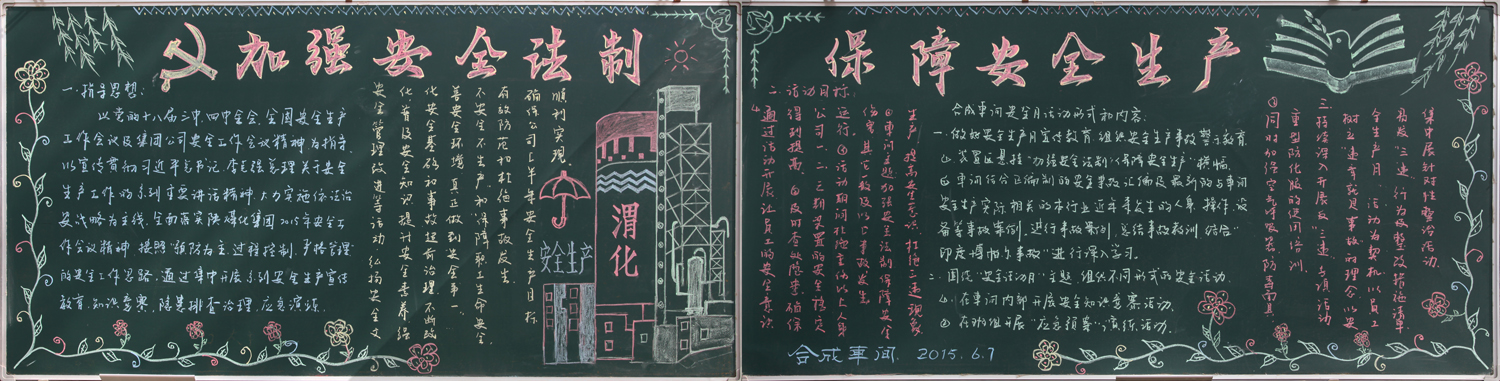 加强安全法制
一.指导思想:
以党的十八届三中.四中全会.全国安全生产
工作会议及集团公司安全工作会议精神为指导.
以宣传贯彻习近平总书记.李克强总理关于安全
生产工作的系列重要讲话精神.大力实施依法治
安战略为主线.全面落实陕煤化集团2015年安全工
作会议精神.按照"预防为主.过程控制.严格管理"
的安全工作思路.通过集中开展系列安全生产宣传
教育.知识竞赛.隐患排查治理.应急演练.
安全管理改进等活动.弘扬安全文
化.普及安全知识.提升安全素养.强
化安全基础和事故超前治理.不断改
善安全环境.真正做到"安全第一.
不安全不生产"和"保障职工生命安全.
有效防范和杜绝事故发生.
确保公司上半年安全生产目标
顺利实现.
安全生产
渭化
保障安全生产
二.活动目标:
生产.提高安全意识.杜绝三违现象
②车间主题加强安全法制保障安全
伤害.其它一般及以上事故发生
运行.③活动期间杜绝重伤以上人身
公司一.二.三期装置的安全稳定
得到提高.
④通过活动开展.让员工的安全素质
合成车间安全月活动形式和内容:
一.做好安全生产月宣传教育.组织安全生产事故警示教育.
①.装置区悬挂"加强安全法制.保障安全生产"横幅.
②车间结合已编制的安全事故汇编及最新的与车间
安全生产实际相关的本行业近年来发生的人身.操作.设
备等事故案例.进行事故案例.总结事故教训.结合"
印度博帕尔事故"进行深入学习.
二.围绕"安全活动月"主题.组织不同形式的安全活动.
①.在车间内部开展安全知识竞赛活动.
②在班组开展"应急预案"演练活动.
三.持续深入开展反"三违"专项活动
树立"违章就是事故"的理念.以安
全生产月.活动为契机.以员工
集中展开针对性整治活动.
合成车间. 2015.6.7